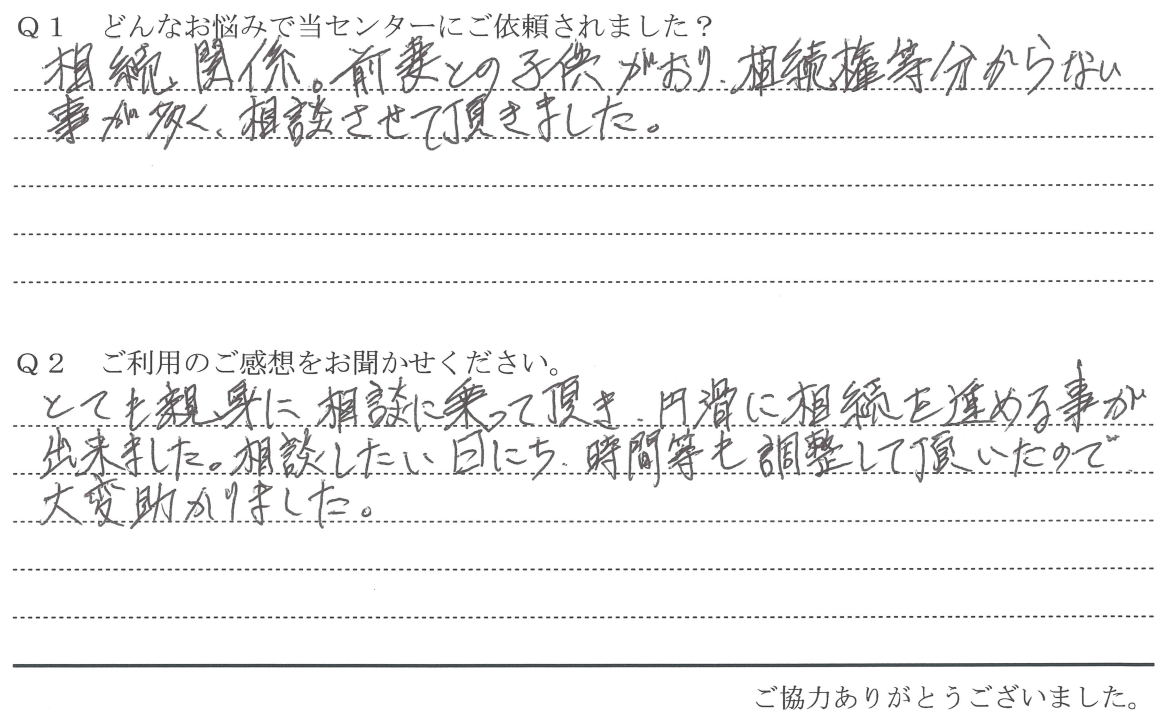 Q1 どんなお悩みで当センターにご依頼されました?
相続関係。前妻との子供がおり、相続権等分からない
事が多く、相談させて頂きました。
Q2 ご利用のご感想をお聞かせください。
とても親身に相談に乗って頂き、円滑に相続を進める事が
出来ました。相談したい日にち、時間等も調整して頂いたので
大変助かりました。
ご協力ありがとうございました。